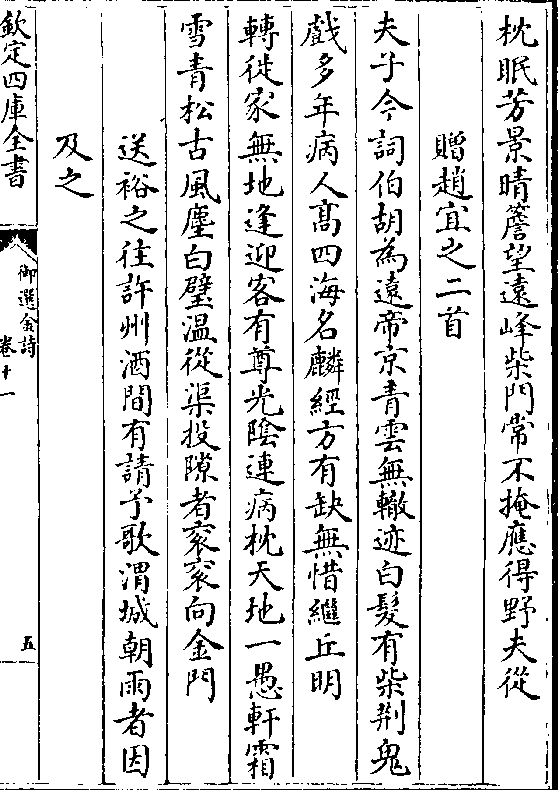 枕眠芳景晴簷望遠峰柴門常不掩應得野夫從
贈趙宜之二首
夫子今詞伯胡為遠帝京青雲無轍迹白髮有柴荆鬼
戲多年病人髙四海名麟經方有缺無惜繼丘明
轉徙家無地逢迎客有尊光陰連病枕天地一愚軒霜
雪青松古風塵白璧温從渠投隙者衮衮向金門
送裕之往許州酒間有請予歌渭城朝雨者因
及之
欽定四庫全書
御選金詩
卷十一
五